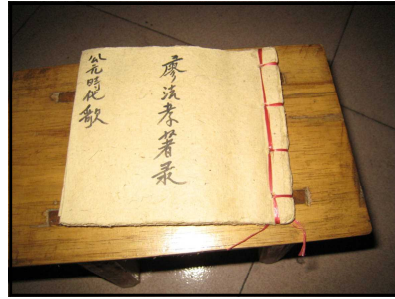 廖法孝著录
公元時代歌